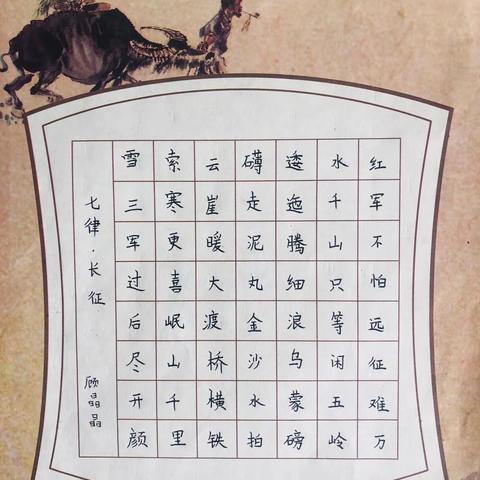 红军不怕远征难万
水千山只等闲五岭
逶迤腾细浪乌蒙磅
礴走泥丸金沙水拍
云崖暖大渡桥横铁
索寒更喜岷山千里
雪三军过后尽开颜
七律·长征 顾晶晶